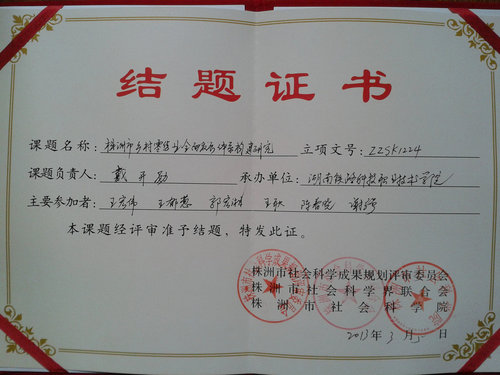 结题证书
课题名称：株洲市乡村零售业 研究 立项文号：ZZSK1224
课题负责人：戴开勋 承办单位：湖南铁路科技职业技术学院
主要参加者：王宏伟 王郁葱 郭宏 王耿 陈 谢
本课题经评审准予结题，特发此证。
株洲市社会科学成果规划评审委员会
株洲市社会科学界联合会
株洲市社会科学院
2013年3月 日